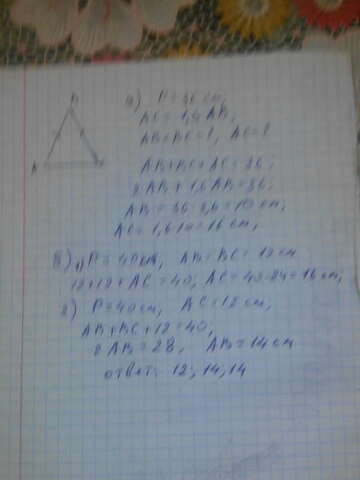 B
A
C
а) P = 36 см;
AC = 1,6 AB,
AB = BC = ?, AC = ?
AB + BC + AC = 36;
2AB + 1,6 AB = 36;
AB = 36 : 3,6 = 10 см,
AC = 1,6 · 10 = 16 см;
б) 1) P = 40 см, AB = BC = 12 см
12 + 12 + AC = 40; AC = 40 - 24 = 16 см;
2) P = 40 см, AC = 12 см,
AB + BC + 12 = 40,
2 AB = 28, AB = 14 см
ответ: 12; 14; 14